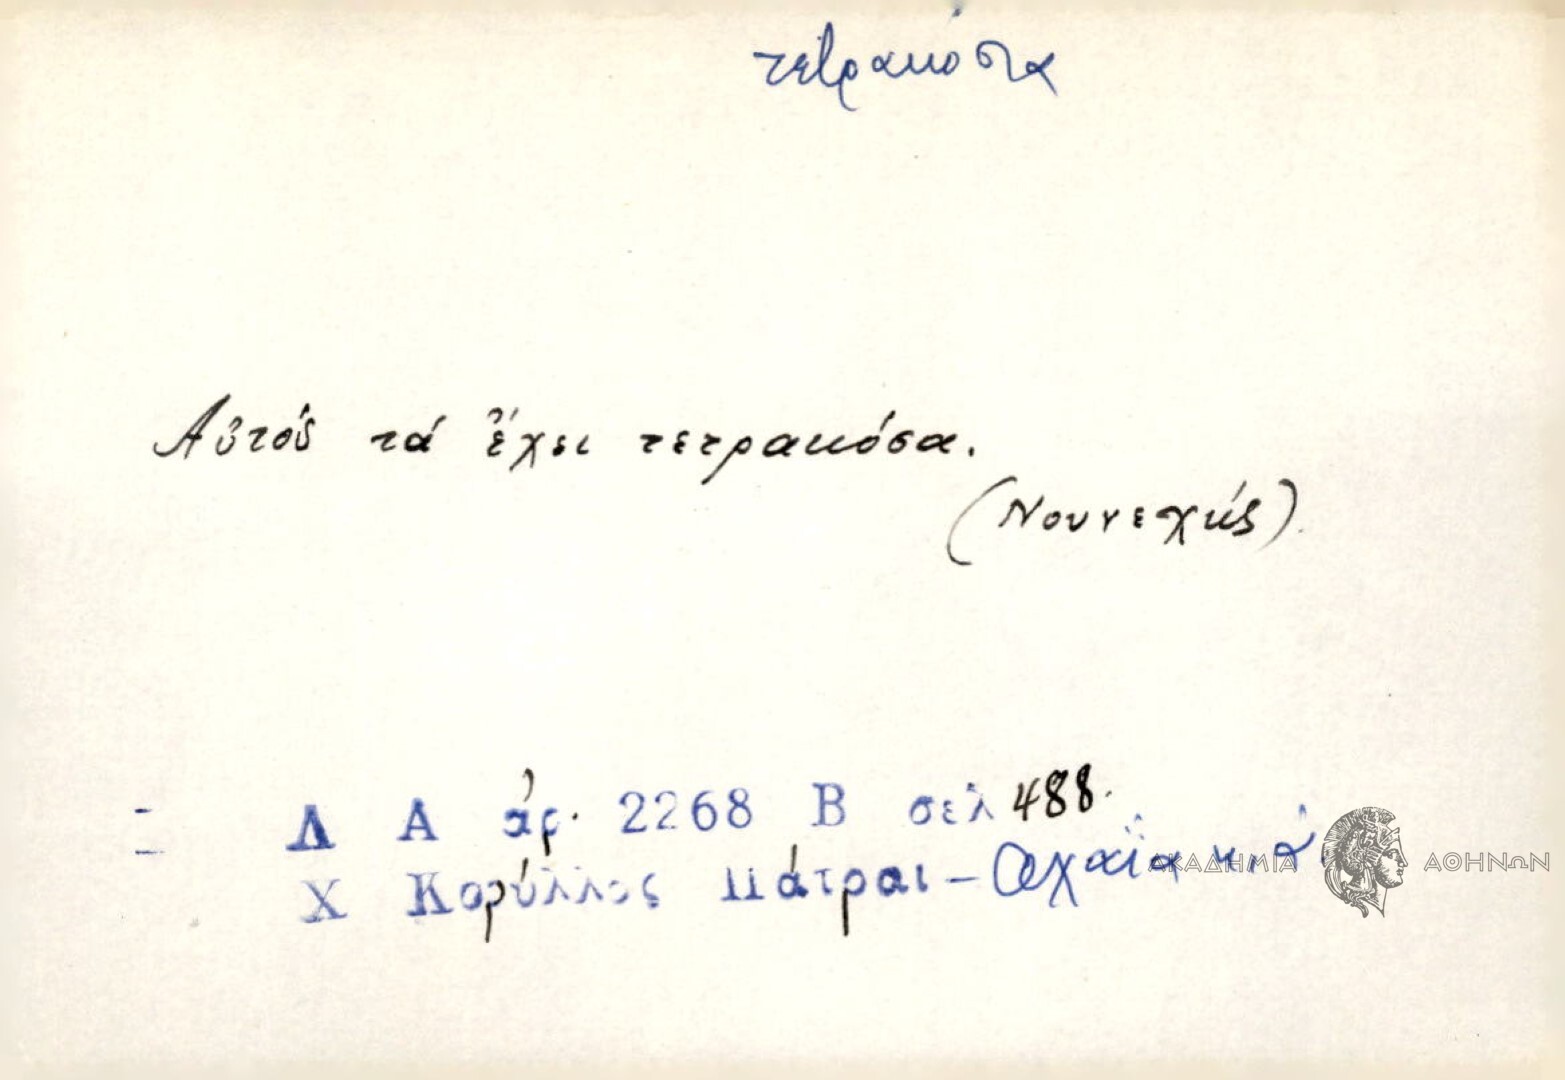 τετρακόσια
Αὐτός τά ἔχει τετρακόσα.
(Νουνεχής).
Λ Α ἀρ. 2268 Β σελ 488.
Χ Κορύλλος Πάτραι - Ἀχαϊκά
ΑΚΑΔΗΜΙΑ ΑΘΗΝΩΝ